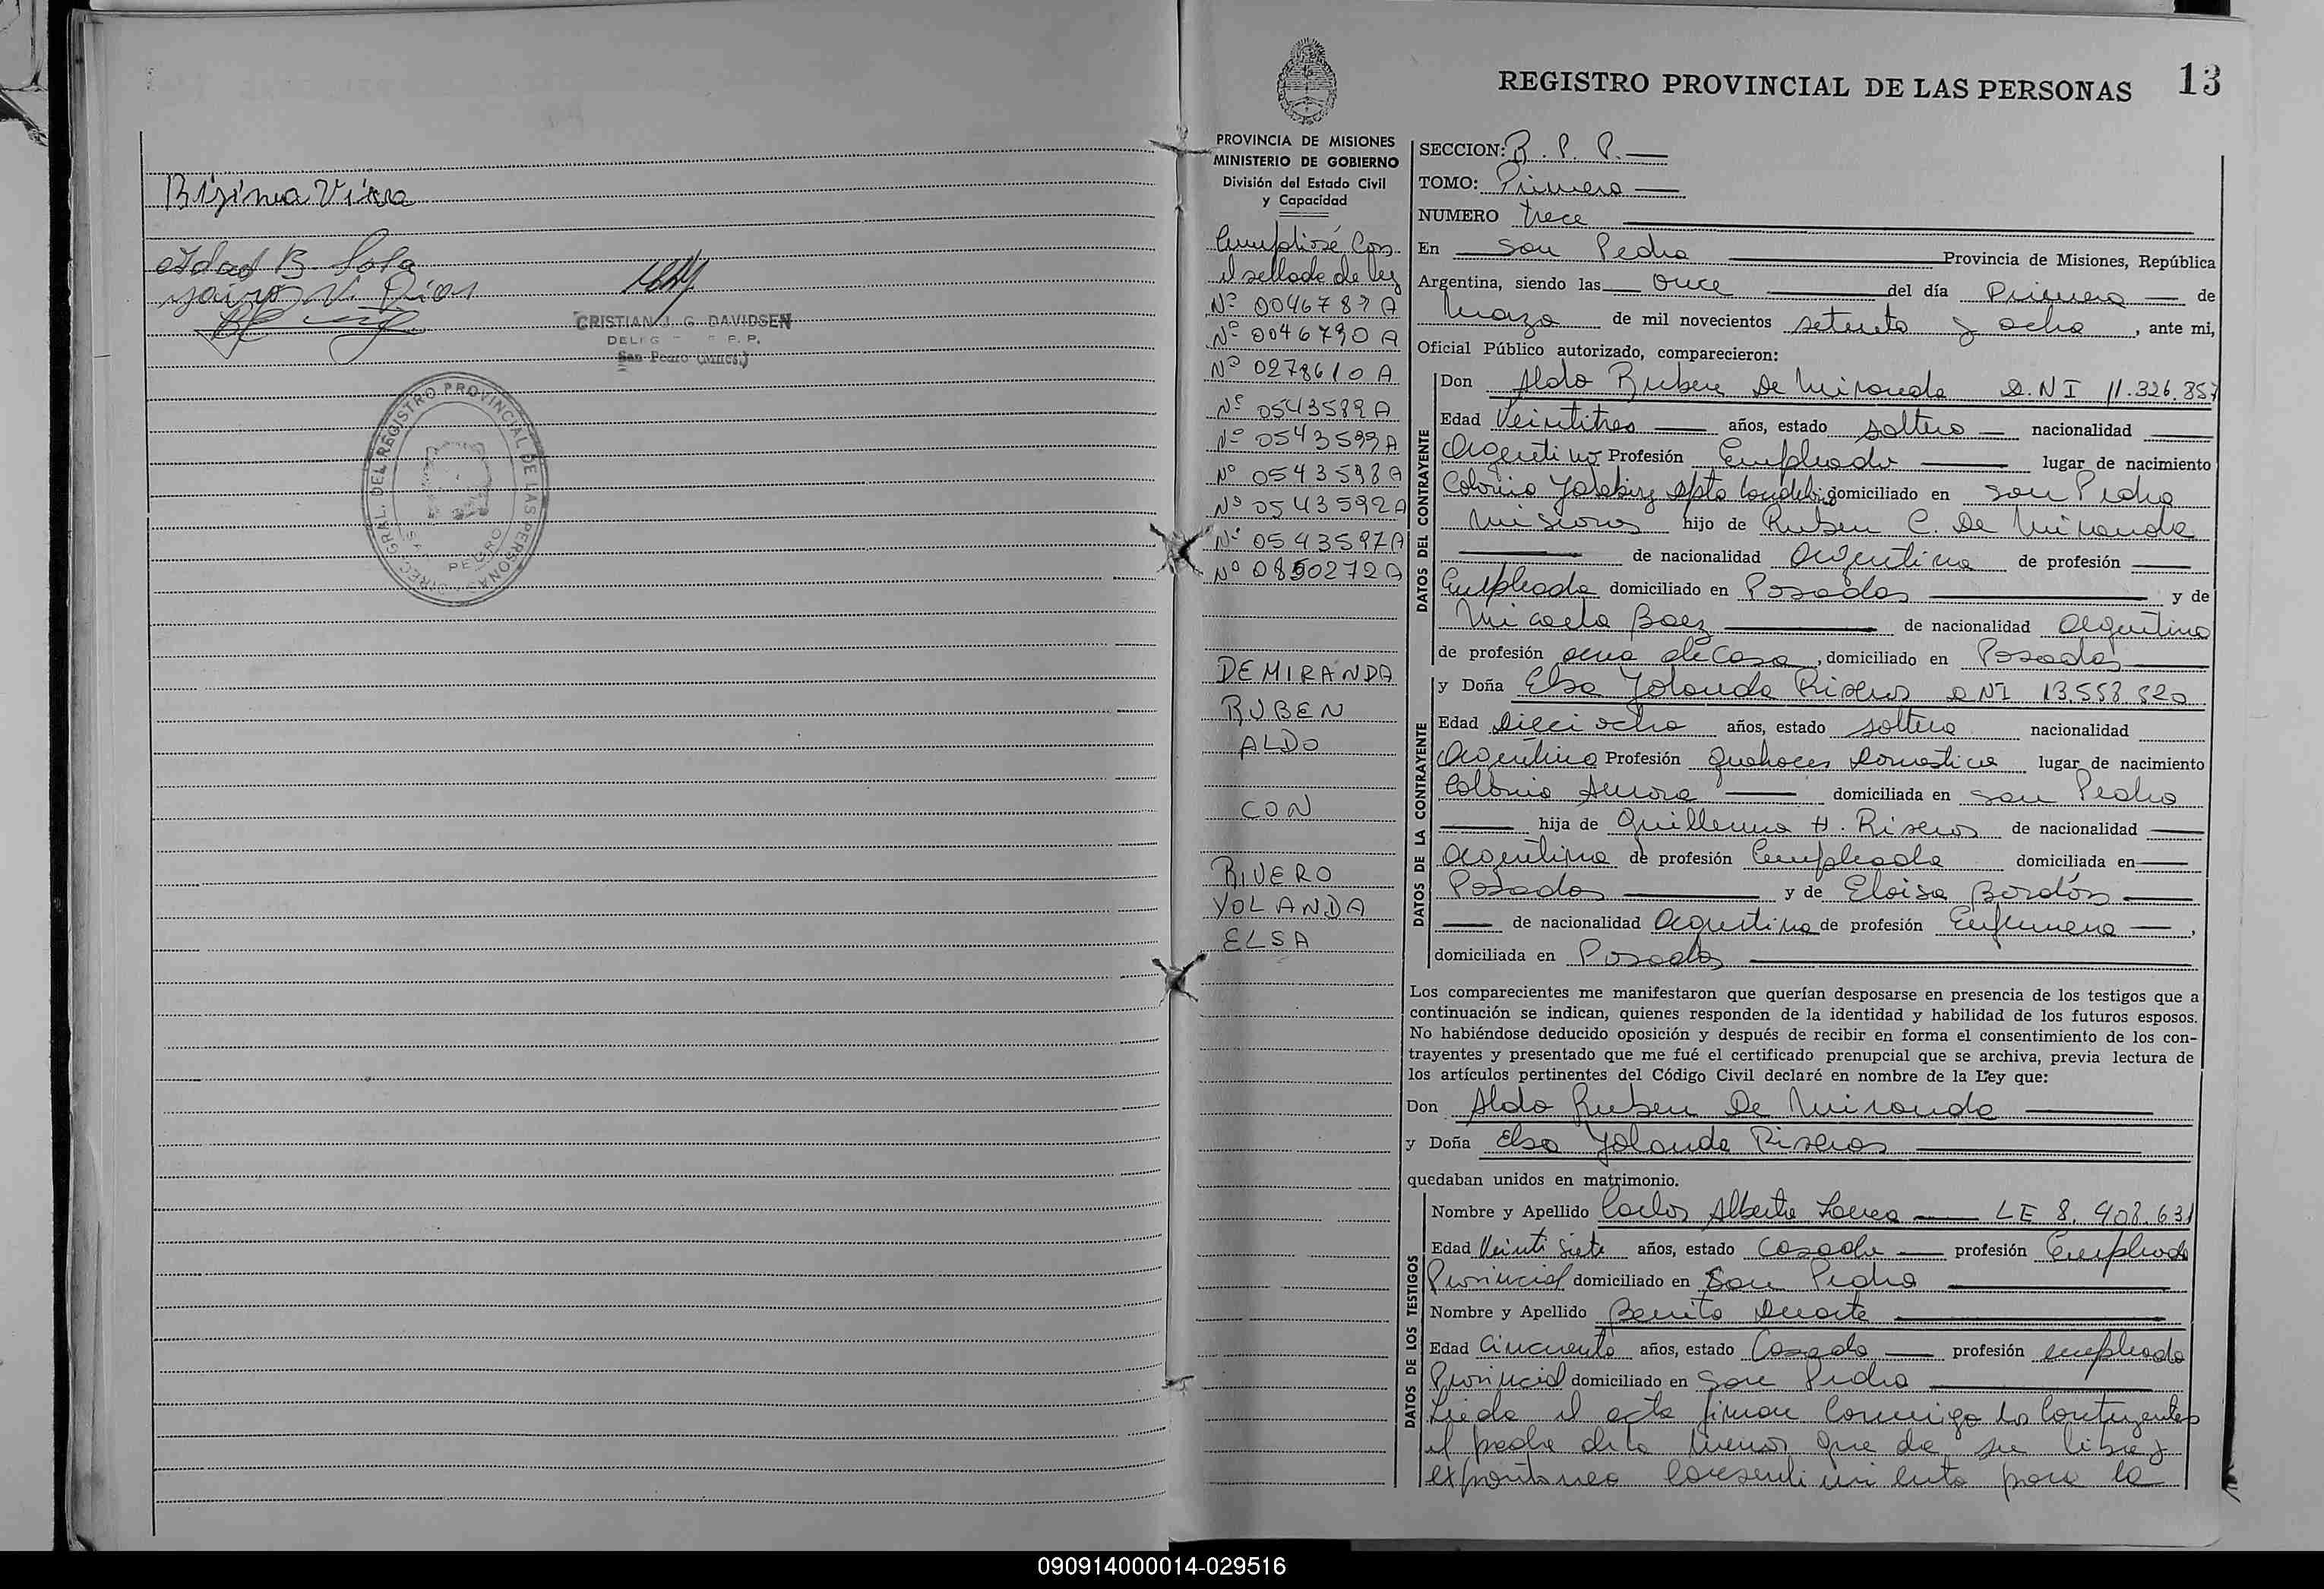 Virna
Idad B. Sosa
CRISTIAN J. G. DAVIDSEN
DELEG P. P.
San Pedro (Mnes.)
DIREC. GRAL. DEL REGISTRO PROVINCIAL DE LAS PERSONAS
PEDRO
REGISTRO PROVINCIAL DE LAS PERSONAS 13
PROVINCIA DE MISIONES
MINISTERIO DE GOBIERNO
División del Estado Civil
y Capacidad
Cumpliose Con
el sellado de ley
Nº 0046787 A
Nº 0046790 A
Nº 0278610 A
Nº 0543589 A
Nº 0543599 A
Nº 0543598 A
Nº 0543592 A
Nº 0543597 A
Nº 0850272 A
DEMIRANDA
RUBEN
ALDO
CON
RIVERO
YOLANDA
ELSA
SECCION: R. P. P.
TOMO: Primero
NUMERO trece
En San Pedro Provincia de Misiones, República
Argentina, siendo las Once del día Primero de
Marzo de mil novecientos setenta y ocho, ante mi,
Oficial Público autorizado, comparecieron:
DATOS DEL CONTRAYENTE
Don Aldo Ruben De Miranda D.N.I 11.326.857
Edad Veintitres años, estado soltero nacionalidad
Argentino Profesión Empleado lugar de nacimiento
Colonia domiciliado en San Pedro
Misiones hijo de Ruben C. De Miranda
de nacionalidad Argentina de profesión
Empleado domiciliado en Posadas y de
Micaela Baez de nacionalidad Argentina
de profesión ama de Casa, domiciliado en Posadas
DATOS DE LA CONTRAYENTE
y Doña Elsa Yolanda Riveros DNI 13.558.820
Edad Dieciocho años, estado soltera nacionalidad
Argentina Profesión Quehaceres Domestica lugar de nacimiento
Colonia Aurora domiciliada en San Pedro
hija de Guillermo H. Riveros de nacionalidad
Argentina de profesión Empleado domiciliada en
Posadas y de Eloisa Bordón
de nacionalidad Argentina de profesión Enfermera,
domiciliada en Posadas
Los comparecientes me manifestaron que querían desposarse en presencia de los testigos que a
continuación se indican, quienes responden de la identidad y habilidad de los futuros esposos.
No habiéndose deducido oposición y después de recibir en forma el consentimiento de los con-
trayentes y presentado que me fué el certificado prenupcial que se archiva, previa lectura de
los artículos pertinentes del Código Civil declaré en nombre de la Ley que:
Don Aldo Ruben De Miranda
y Doña Elsa Yolanda Riveros
quedaban unidos en matrimonio.
DATOS DE LOS TESTIGOS
Nombre y Apellido Carlos Alberto LE 8.408.631
Edad Veintisiete años, estado Casado profesión Empleado
Provincial domiciliado en San Pedro
Nombre y Apellido Benito Duarte
Edad Cincuenta años, estado Casado profesión empleado
Provincial domiciliado en San Pedro
Leida el acta firman Conmigo los Contrayentes
el padre de la menor que da su libre y
expontaneo consentimiento para la
090914000014-029516